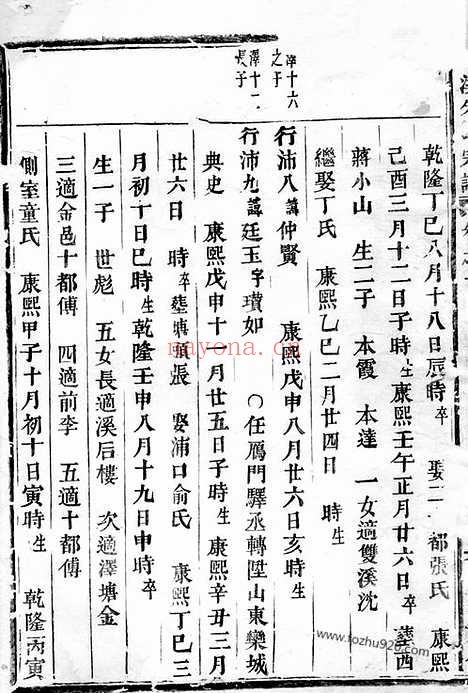 乾隆丁巳八月十八日辰時卒 娶二 都張氏 康熙
己酉三月十二日子時生康熙壬午正月廿六日卒 塟西
蔣小山 生二子 本霞 本達 一女適雙溪沈
繼娶丁氏 康熙乙巳二月廿四日 時生
淬十六
之子
行沛八諱仲賢 康熙戊申八月廿六日亥時生
澤十二
長子
行沛九諱廷玉字瓚如 ○任鴈門驛丞轉陞山東欒城
典史 康熙戊申十一月廿五日子時生 康熙辛丑三月
廿六日 時卒塟塘 張 娶浦口俞氏 康熙丁巳三
月初十日巳時生乾隆壬申八月十九日申時卒
生一子 世彪 五女長適溪后樓 次適澤塘金
三適金邑十都傅 四適前李 五適十都傅
側室童氏 康熙甲子十月初十日寅時生 乾隆丙寅
nayona.cn
www.tozhu920.com